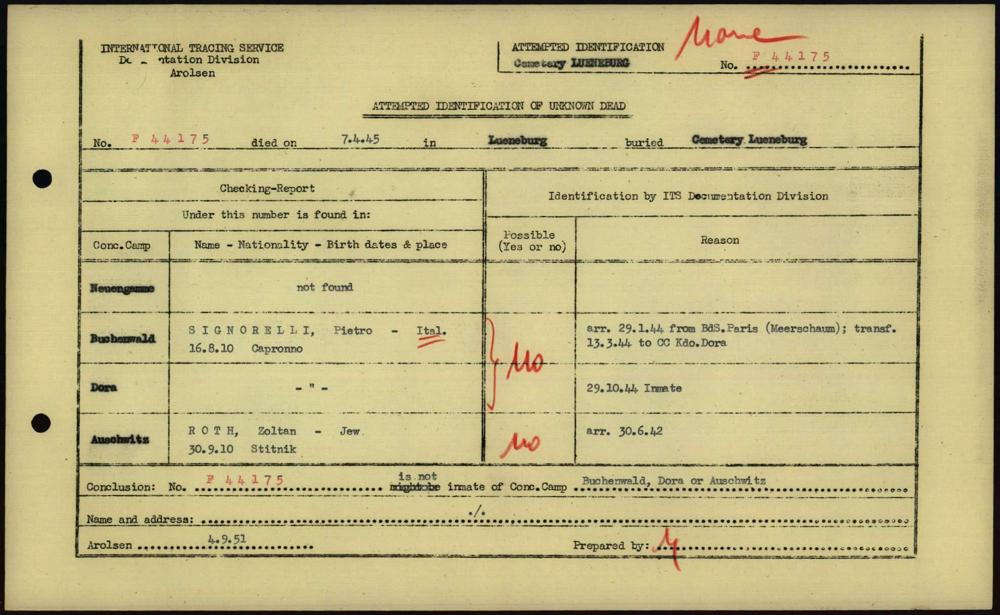 INTERNATIONAL TRACING SERVICE
Documentation Division
Arolsen
ATTEMPTED IDENTIFICATION
Cemetery LUENEBURG
None
No. F 44175
ATTEMPTED IDENTIFICATION OF UNKNOWN DEAD
No. F 44175 died on 7.4.45 in Lueneburg buried Cemetery Lueneburg
Checking-Report
Under this number is found in:
Identification by ITS Documentation Division
Conc.Camp
Name - Nationality - Birth dates & place
Possible
(Yes or no)
Reason
Neuengamme
not found
Buchenwald
SIGNORELLI, Pietro - Ital.
16.8.10 Capronno
No
arr. 29.1.44 from BdS.Paris (Meerschaum); transf.
13.3.44 to CC Kdo.Dora
Dora
- " -
29.10.44 Inmate
Auschwitz
ROTH, Zoltan - Jew
30.9.10 Stitnik
No
arr. 30.6.42
is not
Conclusion: No. F 44175 mightbe inmate of Conc.Camp Buchenwald, Dora or Auschwitz
Name and address: ./.
Arolsen 4.9.51
Prepared by: